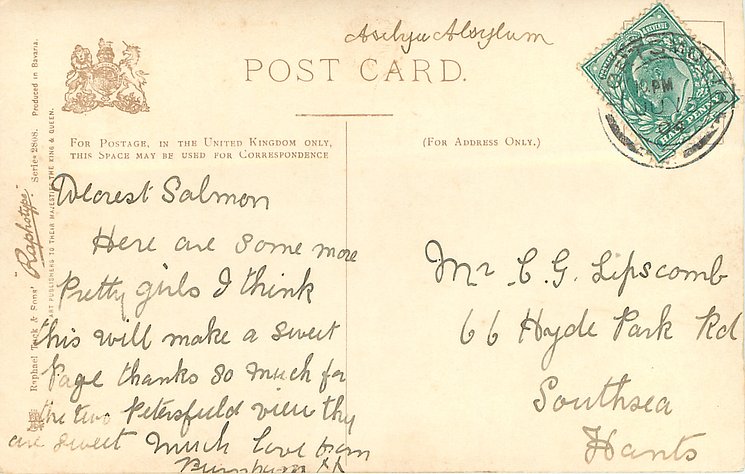 POST CARD.
FOR POSTAGE, IN THE UNITED KINGDOM ONLY,
THIS SPACE MAY BE USED FOR CORRESPONDENCE
(FOR ADDRESS ONLY.)
Raphael Tuck & Sons' "Raphotype" Series 2808. Produced in Bavaria.
ART PUBLISHERS TO THEIR MAJESTIES THE KING & QUEEN.
Dearest Salmon
Here are some more
Pretty girls I think
this will make a sweet
Page thanks so much for
the two Petersfield view thy
are sweet Much love from
Mr C. G. Lipscomb
66 Hyde Park Rd
Southsea
Hants